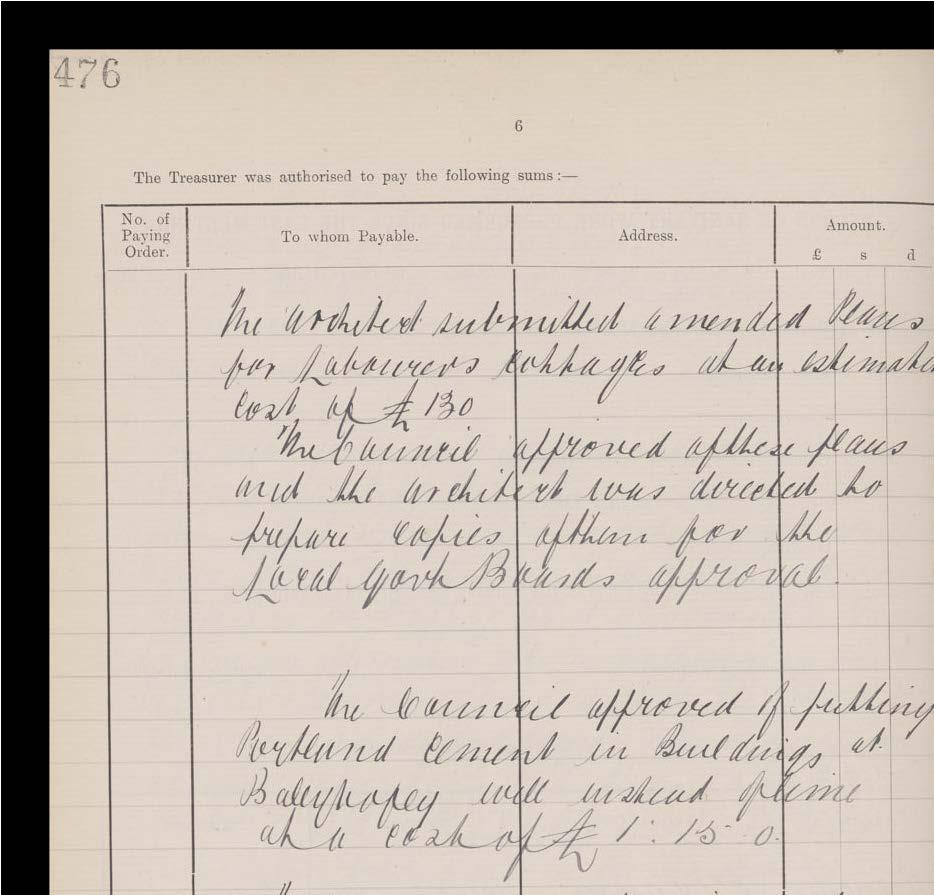 476
6
The Treasurer was authorised to pay the following sums:—
No. of Paying Order.
To whom Payable.
Address.
Amount.
£ s d
The Architect submitted amended Plans
for Labourers Cottages at an estimated
cost of £130
The Council approved of these plans
and the architect was directed to
prepare copies of them for the
Local Govt Boards approval.
The Council approved of putting
Portland Cement in Buildings at
well instead of lime
at a cost of £1:15 0.